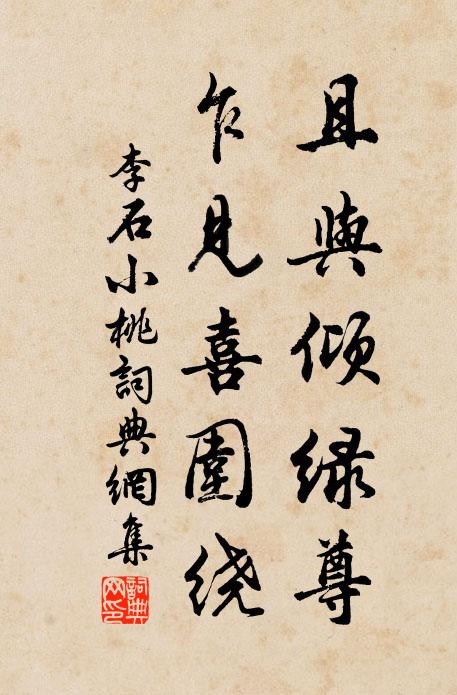 且與倾绿尊
乍見喜圍绕
李石小桃詞典網集
詞典